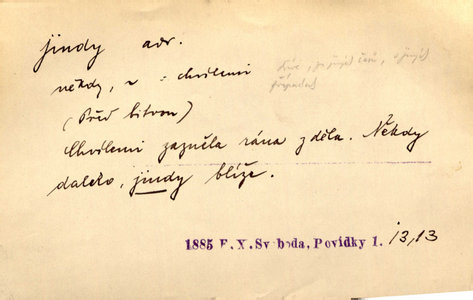 jindy adv.
někdy, chvílemi
(Před bitvou)
Chvílemi zazněla rána z děla. Někdy
daleko, jindy blíže.
1885 F. X. Svoboda, Povídky 1. 13,13